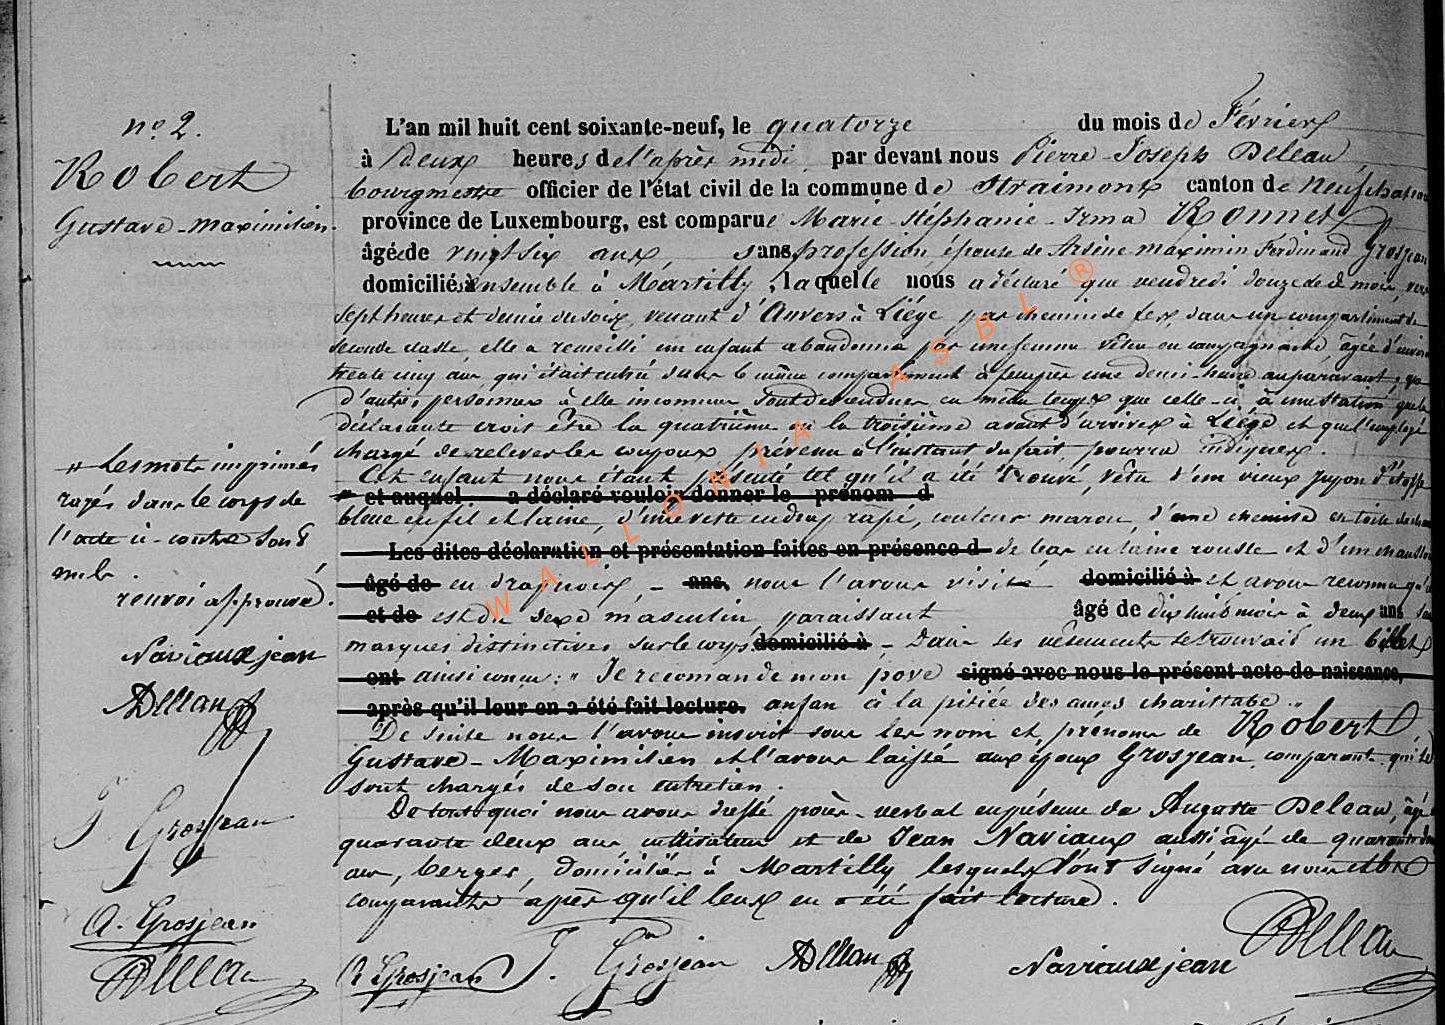 n° 2.
Robert
Gustave-Maximilien.
L'an mil huit cent soixante-neuf, le quatorze du mois de Février
à deux heures de l'après midi, par devant nous Pierre-Joseph Deleau,
bourgmestre officier de l'état civil de la commune de Straimont canton de Neufchateau
province de Luxembourg, est comparue Marie-Stéphanie-Irma Ronnet
âgée de vingt six ans, sans profession, épouse de Arsène Maximin Ferdinand Grosjean
domiciliés ensemble à Martilly, laquelle nous a déclaré que vendredi douze de ce mois, vers
sept heures et demie du soir, venant d'Anvers à Liége par chemin de fer, dans un compartiment de
seconde classe, elle a recueilli un enfant abandonné par une femme vêtue en campagnarde, âgée d'environ
trente cinq ans, qui était entré dans le même compartiment à peu près une demi-heure auparavant, que
d'autres personnes à elle inconnues sont descendues en même temps que celle-ci à une station que la
déclarante croit être la quatrième ou la troisième avant d'arriver à Liége et que l'employé
chargé de relever les coupons prévenu à l'instant du fait pourra indiquer.
Cet enfant nous étant présenté tel qu'il a été trouvé, vêtu d'un vieux jupon d'étoffe
et auquel a déclaré vouloir donner le prénom d
bleue en fil et laine, d'une veste en drap rapé, couleur maron, d'une chemise en toile
Les dites déclaration et présentation faites en présence d de bas en laine rousse et d'un
âgé de en drap noir, - ans, nous l'avons visité domicilié à et avons reconnu qu'il
et de est du sexe masculin, paraissant âgé de dix huit mois à deux ans sans
marques distinctives sur le corps domicilié à - Dans ses vêtements se trouvait un billet
ont ainsi conçu : " Je recomande mon povre signé avec nous le présent acte de naissance,
après qu'il leur en a été fait lecture. anfan à la pitiée des ames charittabe "
De suite nous l'avons inscrit sous les nom et prénoms de Robert
Gustave-Maximilien et l'avons laissé aux époux Grosjean, comparant qui se
sont chargés de son entretien.
De tout quoi nous avons dressé procès-verbal en présence de Auguste Deleau, âgé de
quarante deux ans cultivateur et de Jean Naviaux aussi âgé de quarante deux
ans, berger, domiciliés à Martilly lesquels ont signé avec nous et la
comparante après qu'il leur en a été fait lecture.
Les mots imprimés
rayés dans le corps de
l'acte ci-contre sont
nuls.
renvoi approuvé.
Naviaux jean
ADeleau
J. Grosjean
A. Grosjean
PDeleau
A Grosjean J. Grosjean ADeleau Naviaux jean PDeleau
WALLONIA ASBL ®